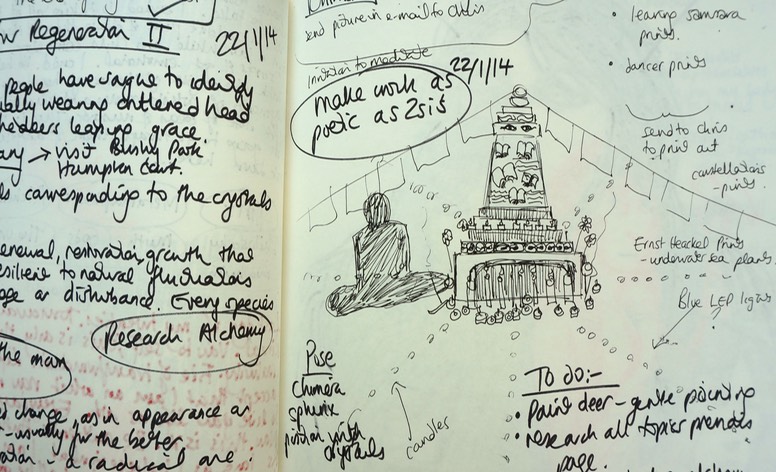 Regeneration II
22/1/14
people have
to identify
wearing antlered head
leaving grace.
→ visit Bushy Park
Hampton Court.
corresponding to the crystals
renewal, restoration, growth that
resilient to natural fluctuations
or disturbance. Every species
Research Alchemy
the man
change, as in appearance or
- usually for the better
- a radical
send picture in e-mail to Chris
Invitation to meditate
22/1/14
make work as
poetic as 2sis
leaving samsara
prints.
dancer prints
send to chris
to print out
constellations
- prints.
Ernst Haeckel Prints
- underwater sea plants.
Blue LED lights
Pose
Chimera
Sphinx
with
crystals
candles
To do:-
• Paint deer - genre painting
• research all topics previous
page.